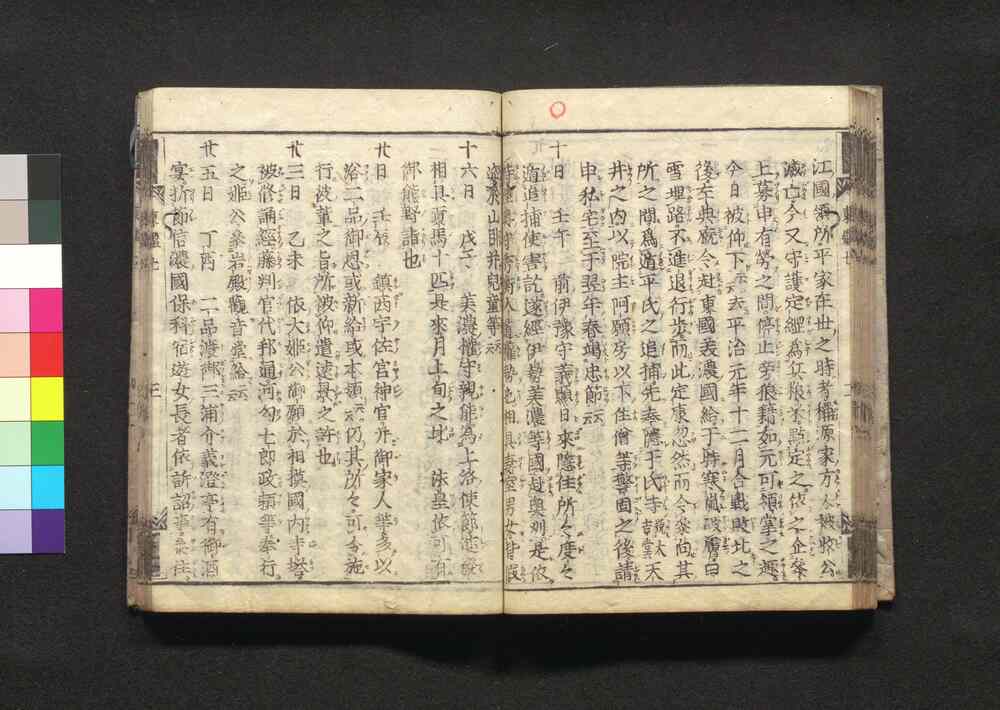 江國領所平家在世之時者稱原家方人被收公
滅亡今又守護定綱爲兵粮米點定之依之企參
上募申有勞之間停止旁狼籍如元可領掌之趣
今日被仰下云云平治元年十二月合戰敗北之
後左典厩令赴東國美濃國給于時寒嵐破膚白
雪埋路不進退行步而此定康忽然而令參向其
所之間爲遁平氏之追捕先奉隱于氏寺號大吉堂天
井之内以院主阿願房以下住僧等警固之後請
申私宅至于翌年春竭忠節云云
十日 壬午 前伊豫守義顯日來隱住所々度々
遁追捕使害訖遂經伊勢美濃等國赴奥州是依
恃陸奥守秀衡入道權勢也相具妻室男女皆假
姿於山臥并兒童等云云
十六日 戊子 美濃權守親能爲上洛使節進發
相具貢馬十匹是來月上旬之比 法皇依可有
御熊野詣也
廿日 壬辰 鎮西宇佐宮神官并御家人等多以
浴二品御恩或新給或本領云云仍其所々可令施
行彼輩之旨所被仰遣遠景之許也
廿三日 乙未 依大姫公御願於相摸國内寺塔
被修誦經藤判官代邦通河勾七郎政頼等奉行
之姫公參岩殿觀音堂給云云
廿五日 丁酉 二品渡御三浦介義澄亭有御酒
宴折節信濃國保科宿遊女長者依訴訟事參住